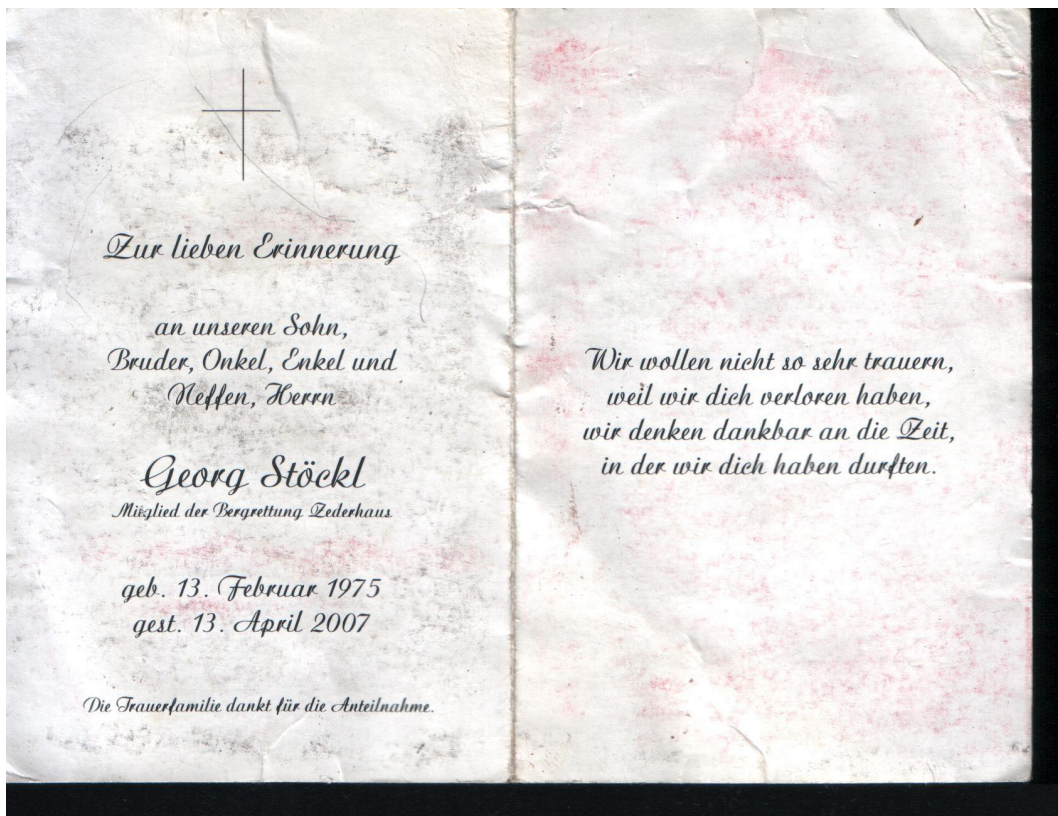 Zur lieben Erinnerung
an unseren Sohn,
Bruder, Onkel, Enkel und
Neffen, Herrn
Georg Stöckl
Mitglied der Bergrettung Zederhaus
geb. 13. Februar 1975
gest. 13. April 2007
Die Trauerfamilie dankt für die Anteilnahme.
Wir wollen nicht so sehr trauern,
weil wir dich verloren haben,
wir denken dankbar an die Zeit,
in der wir dich haben durften.